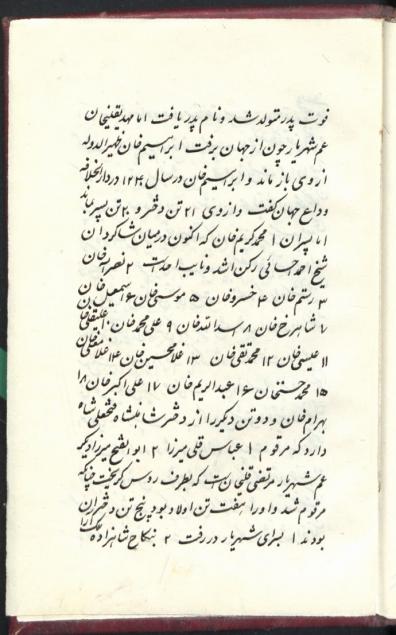 فوت پدر متولد شد و نام پدر یافت اما مهدیقلیخان
عم شهریار چون از جهان برفت ابراهیم خان ظهیرالدوله
از وی باز ماند و ابراهیم خان در سال ۱۲۴۰ در دارالخلافه
وداع جهان گفت و از وی ۲۱ تن دختر و ۲۰ تن پسر بماند
اما پسران ۱ محمد کریم خان که اکنون در میان شاگردان
شیخ احمد احسائی رکن اشد و نایب احد است ۲ نصرالله خان
۳ رستم خان ۴ خسرو خان ۵ موسی خان ۶ اسمعیل خان
۷ شاهرخ خان ۸ اسدالله خان ۹ علی محمد خان ۱۰ علیقلی خان
۱۱ عیسی خان ۱۲ محمد تقی خان ۱۳ غلامحسین خان ۱۴ غلامعلی خان
۱۵ محمد حسنخان ۱۶ عبدالرحیم خان ۱۷ علی اکبر خان ۱۸
بهرام خان و دو تن دیگر را از دختر شاهنشاه فتحعلی شاه
دارد که مرقوم ۱ عباس قلی میرزا ۲ ابوالفتح میرزا دیگر
عم شهریار مرتضی قلیخان است که بطرف روس گریخت چنانکه
مرقوم شد و او را هفت تن اولاد بود پنج تن دختران
بودند ۱ بسرای شهریار در رفت ۲ بنکاح شاهزاده ملک آرا